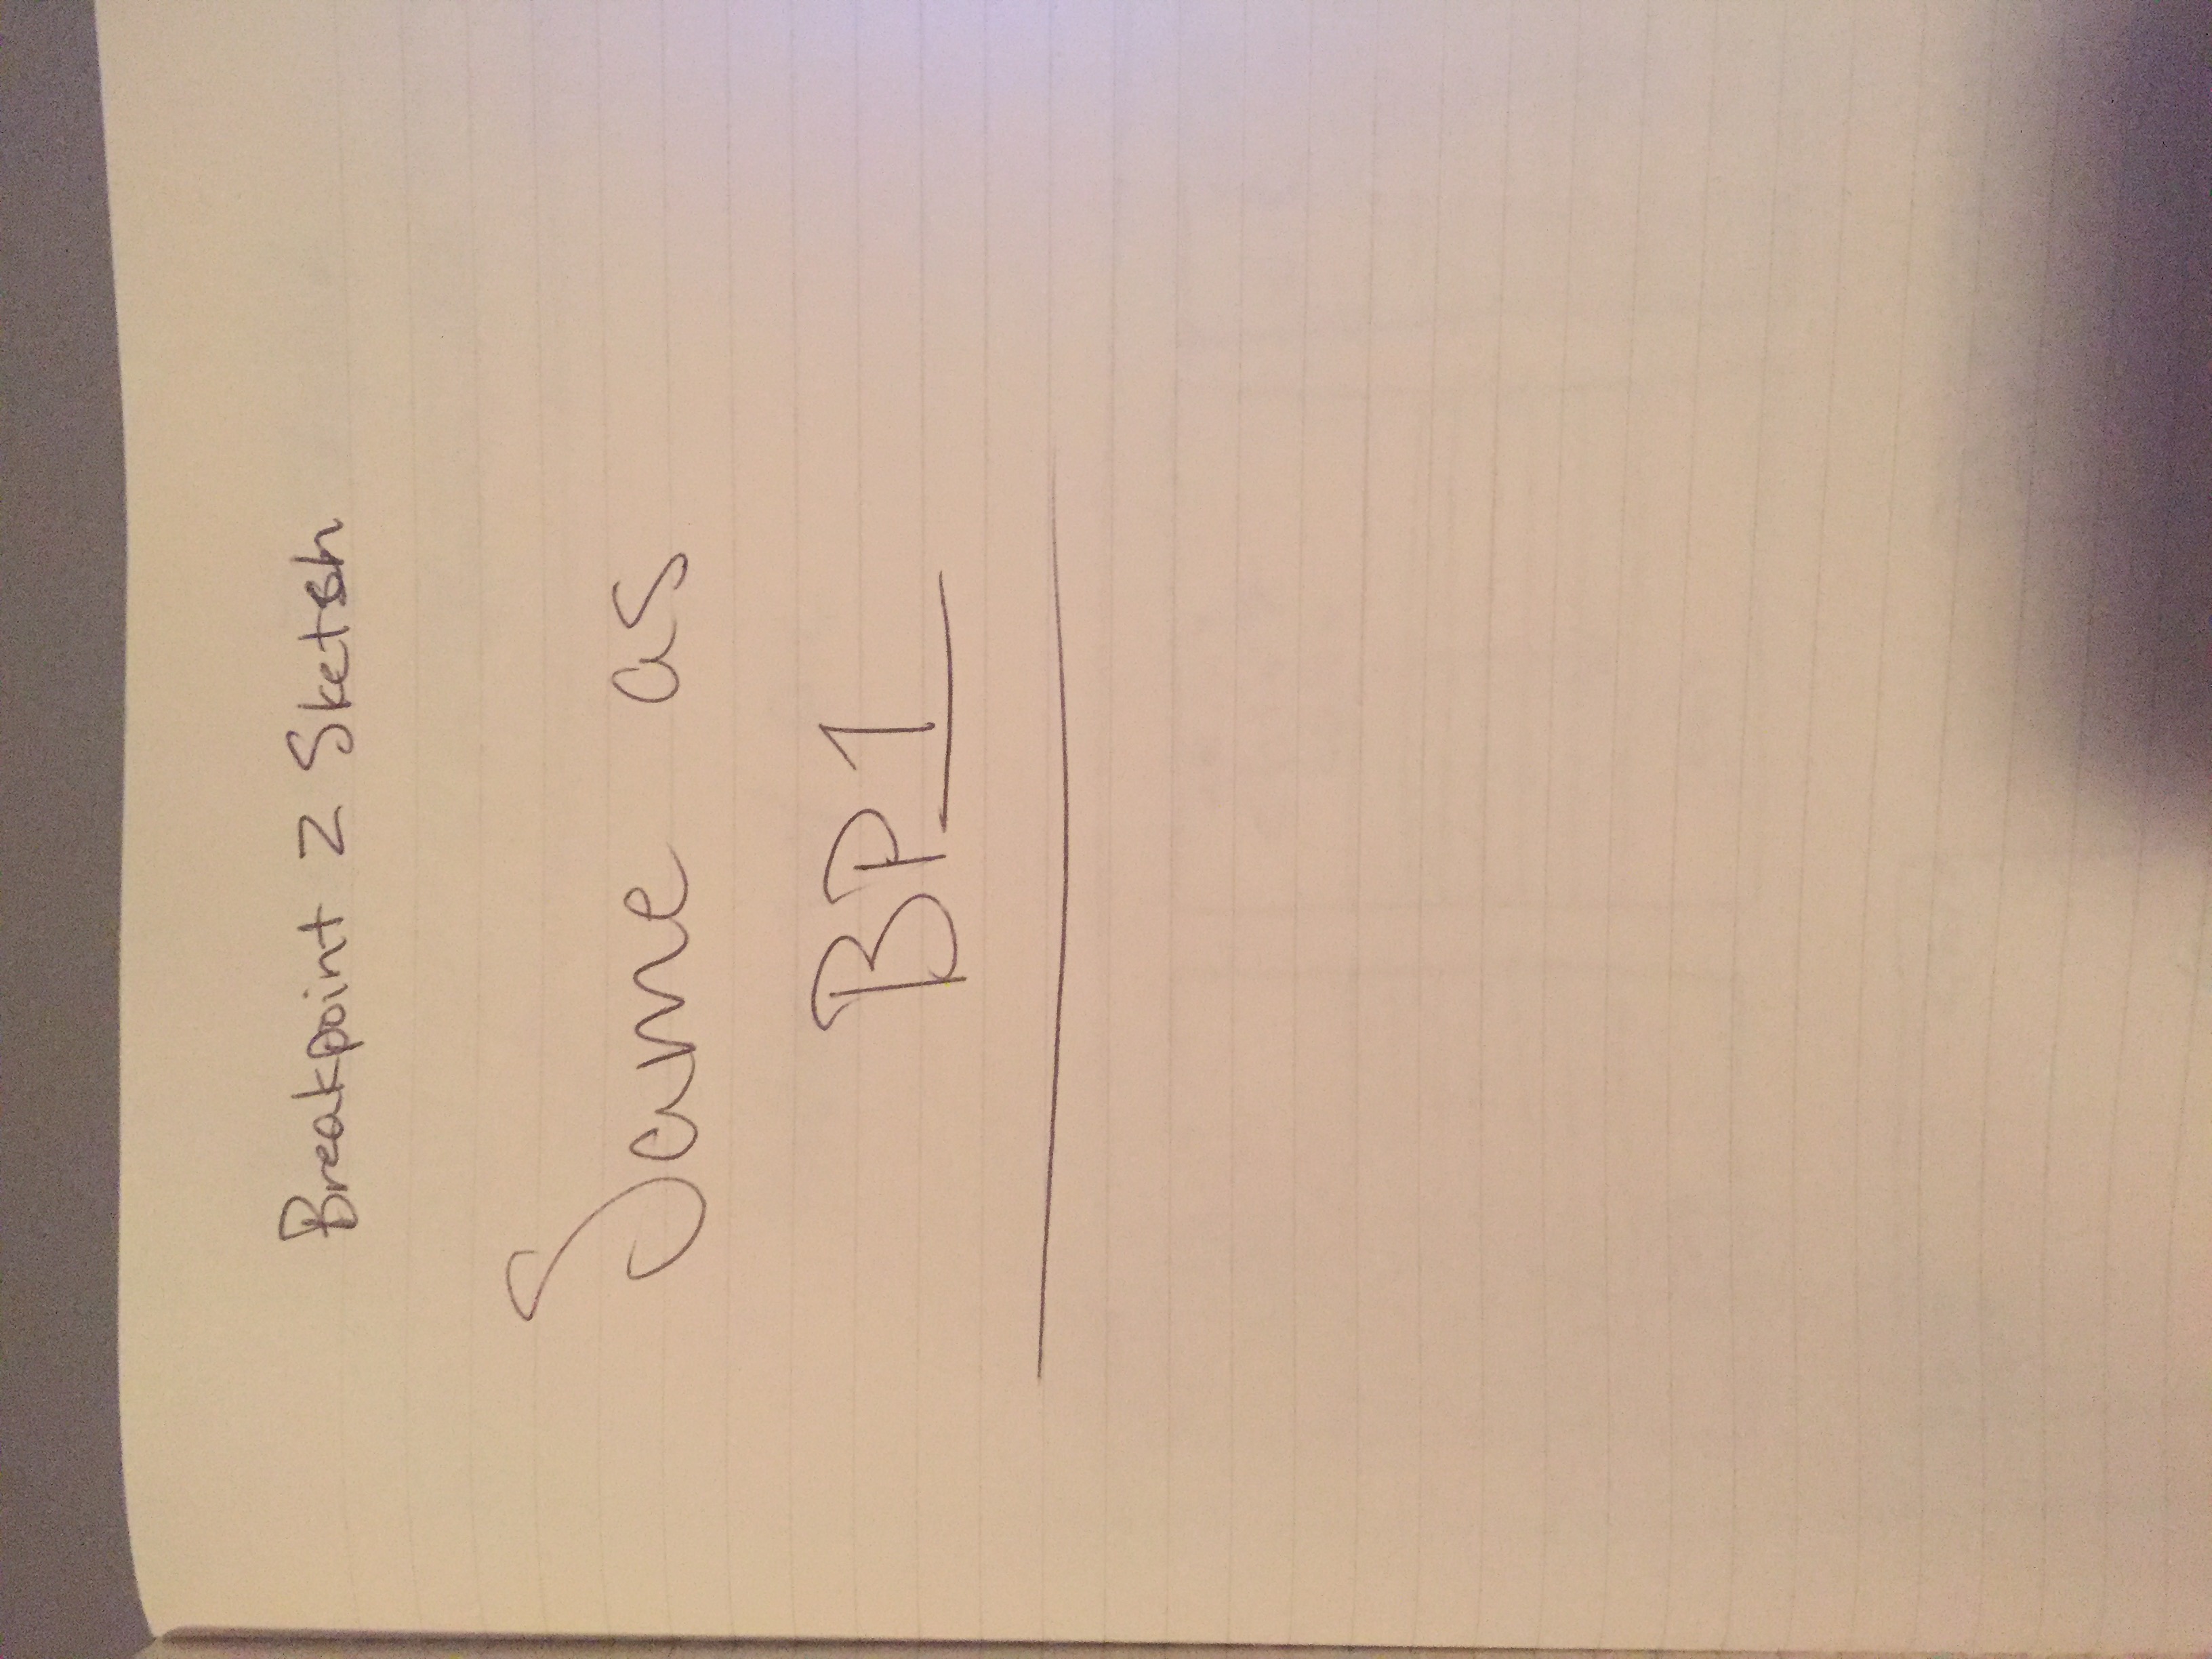 Breakpoint 2 Sketch
Same as
BP1